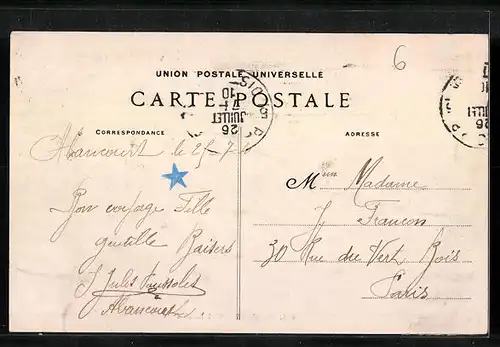 6
UNION POSTALE UNIVERSELLE
CARTE POSTALE
CORRESPONDANCE
ADRESSE
26
JUILLET
10
Abancourt le 25-7-
Bon voyage Fille
gentille Baisers
J Jules
Abancourt
M Madame
J Francon
30 Rue du Vert Bois
Paris